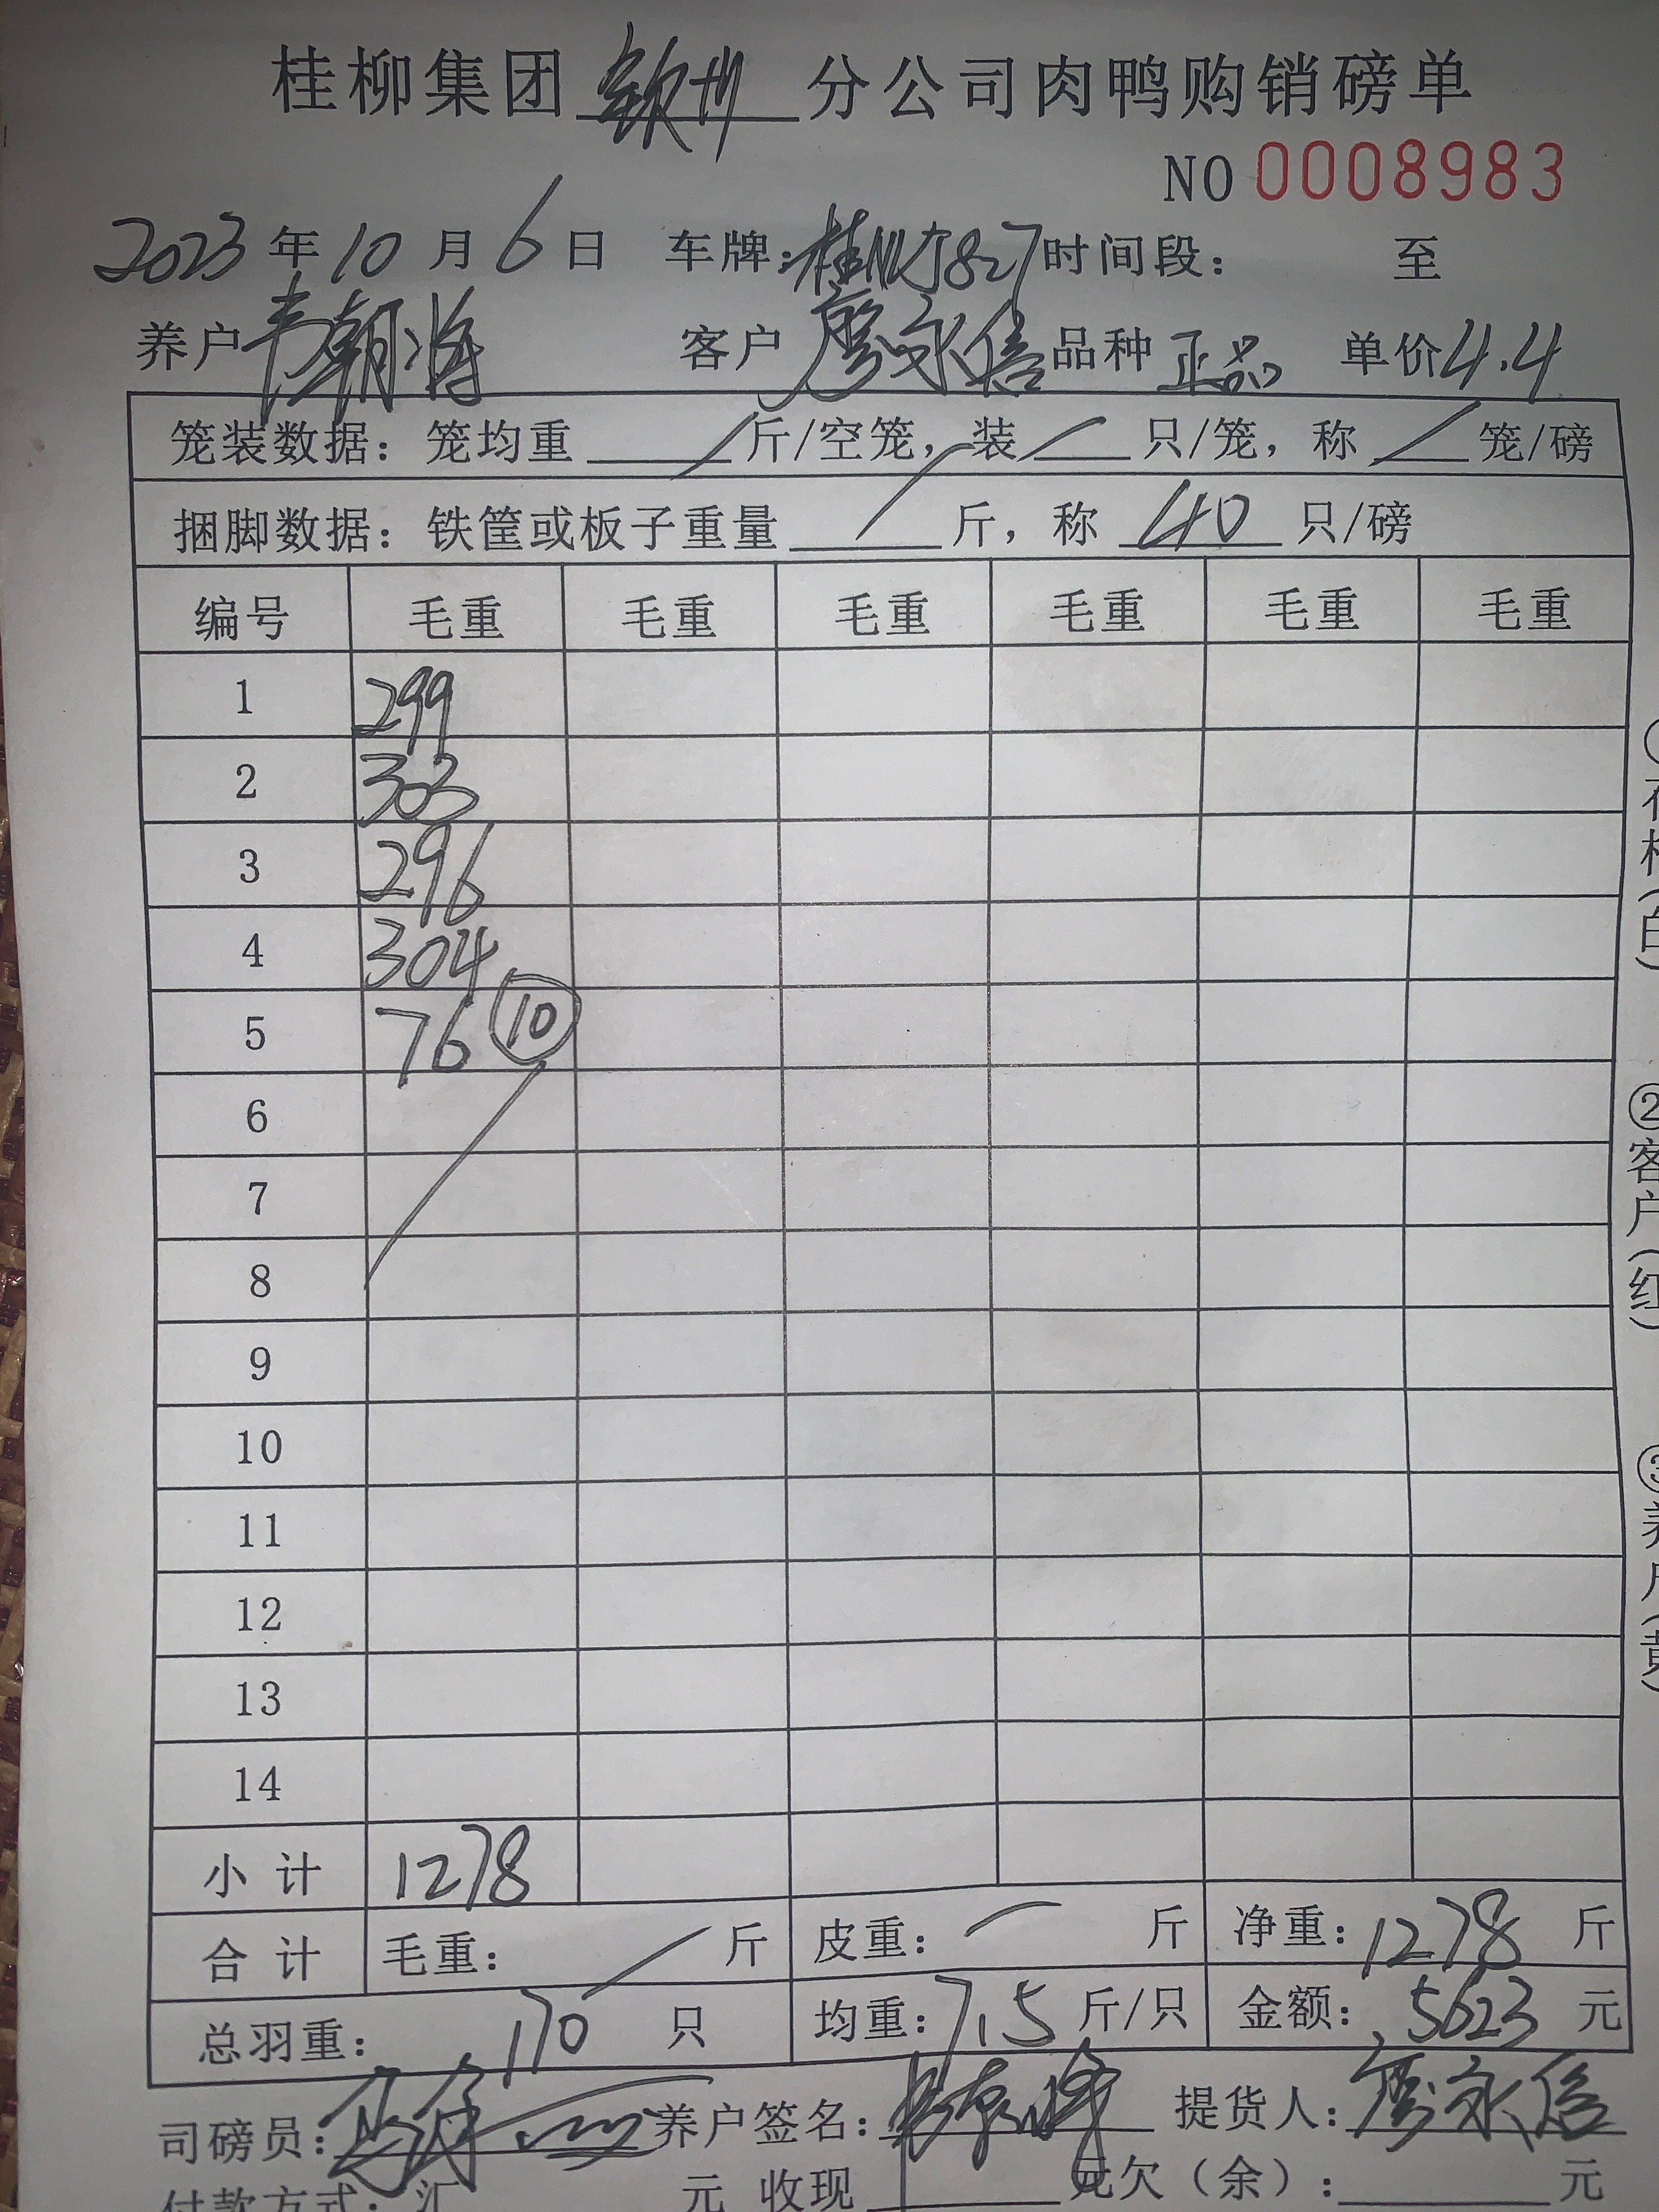 桂柳集团钦州分公司肉鸭购销磅单
NO 0008983
2023年10月6日 车牌: 时间段: 至
养户 韦朝海 客户 廖永信 品种 正品 单价 4.4
笼装数据: 笼均重 / 斤/空笼, 装 / 只/笼, 称 / 笼/磅
捆脚数据: 铁筐或板子重量 / 斤, 称 40 只/磅
编号 毛重 毛重 毛重 毛重 毛重 毛重
1 299
2 303
3 296
4 304
5 76 ⑩
6
7
8
9
10
11
12
13
14
小计 1278
合计 毛重: / 斤 皮重: 斤 净重: 1278 斤
总羽重: 170 只 均重: 7.5 斤/只 金额: 5623 元
司磅员: 养户签名: 提货人: 廖永信
付款方式: 汇 元 收现 元 欠(余): 元
②客户(红)